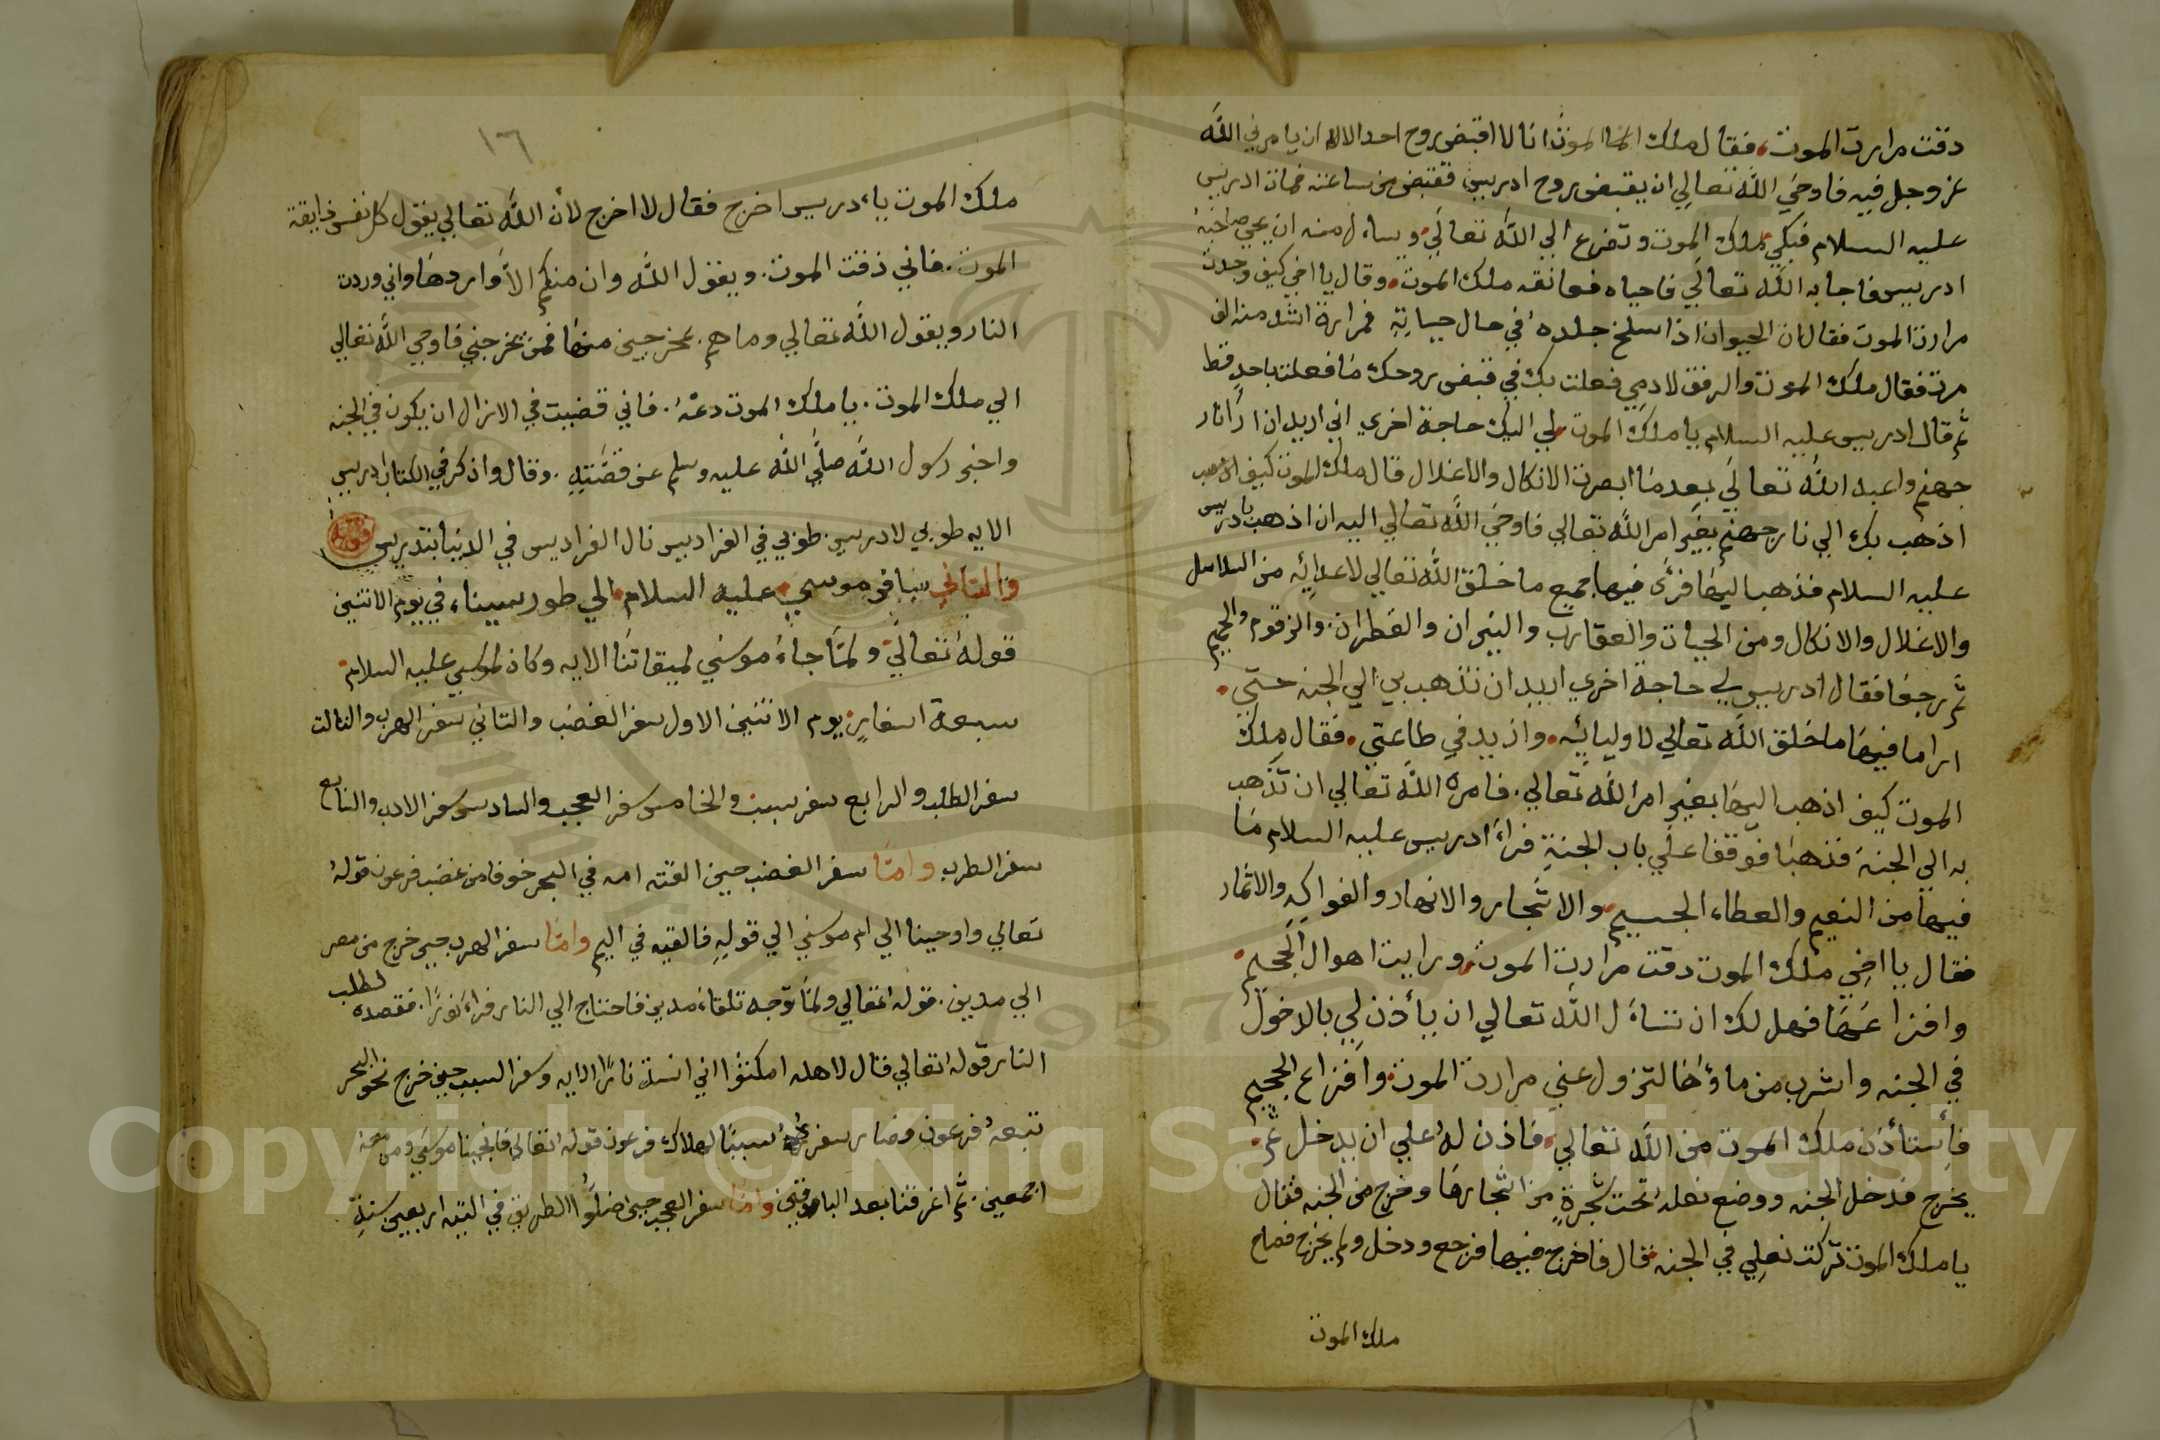 دقت مرارت الموت فقال ملك الموت انا لا اقبض روح احد الا ان يامرني الله
عز وجل فيه فاوحي الله تعالي ان يقبض روح ادريس فقبض من ساعته فمات ادريس
عليه السلام فبكي ملك الموت وتضرع الي الله تعالي وساءل منه ان يحيي صاحبه
ادريس فاجابه الله تعالي فاحياه فعانقه ملك الموت وقال يا اخي كيف وجدت
مرارت الموت فقال ان الحيوان اذا سلخ جلده في حال حياته فمرارة اشد منه الف
مرة فقال ملك الموت والرفق لادمي فعلت بك في قبض روحك ما فعلت باحد قط
ثم قال ادريس عليه السلام يا ملك الموت لي اليك حاجة اخري اني اريد ان ارا نار
جهنم واعبد الله تعالي بعد ما ابصرت الانكال والاغلال قال ملك الموت كيف
اذهب بك الي نار جهنم بغير امر الله تعالي فاوحي الله تعالي اليه ان اذهب بادريس
عليه السلام فذهبا اليها فرئ فيها جميع ما خلق الله تعالي لاعدائه من السلاسل
والاغلال والانكال ومن الحيات والعقارب والنيران والقطران والزقوم والحميم
ثم رجعا فقال ادريس لي حاجة اخري اريد ان تذهب بي الي الجنه حتي
ارا ما فيها ما خلق الله تعالي لاوليائه وازيد في طاعتي فقال ملك
الموت كيف اذهب اليها بغير امر الله تعالي فامره الله تعالي ان تذهب
به الي الجنة فذهبا فوقفا علي باب الجنة فراء ادريس عليه السلام ما
فيها من النعيم والعطاء الجسيم والاشجار والانهار والفواكه والاثمار
فقال يا اخي ملك الموت دقت مرارت الموت ورايت اهوال الجحيم
وافزاعها فهل لك ان تساءل الله تعالي ان ياذن لي بالدخول
في الجنه واشرب من ماؤها لتزول عني مرارت الموت وافزاع الجحيم
فأستأذن ملك الموت من الله تعالي فاذن له علي ان يدخل ثم
يخرج فدخل الجنه ووضع نعله تحت شجرة من اشجارها وخرج من الجنه فقال
يا ملك الموت تركت نعلي في الجنه قال فاخرج فيها فرجع ودخل ولم يخرج فصاح
ملك الموت
١٦
ملك الموت يا ادريس اخرج فقال لا اخرج لأن الله تعالي يقول كل نفس ذايقة
الموت فاني ذقت الموت ويقول الله وان منكم الا واردها واني وردت
النار ويقول الله تعالي وما هم بمخرجين منها فمن يخرجني فاوحي الله تعالي
الي ملك الموت يا ملك الموت دعه فاني قضيت في الازال ان يكون في الجنه
واخبر رسول الله صلي الله عليه وسلم عن قصته وقال واذكر في الكتاب ادريس
الايه طوبي لادريس طوبي في الفراديس نال الفراديس في الدنيا بتدريس
والثاني سافر موسي عليه السلام الي طور سيناء في يوم الاثنين
قوله تعالي ولما جاء موسي لميقاتنا الايه وكان لموسي عليه السلام
سبعة اسفار يوم الاثنين الاول سفر الغضب والثاني سفر الهرب والثالث
سفر الطلب والرابع سفر سبب والخامس سفر العجب والسادس سفر الادب والسابع
سفر الطرب واما سفر الغضب حين القته امه في البحر خوفا من غضب فرعون قوله
تعالي واوحينا الي ام موسي الي قوله فالقيه في اليم واما سفر الهرب حين خرج من مصر
الي مدين قوله تعالي ولما توجه تلقاء مدين فاحتاج الي النار فراء نورا فقصده لطلب
النار قوله تعالي قال لاهله امكثوا اني انست نارا الايه وسفر السبب حين خرج نحو البحر
تبعه فرعون وصار سفره سببا لهلاك فرعون قوله تعالي فانجينا موسي ومن معه
اجمعين ثم اغرقنا بعد الباقين واما سفر العجب حين ضلوا الطريق في التيه اربعين سنة
Copyright © King Saud University
1957